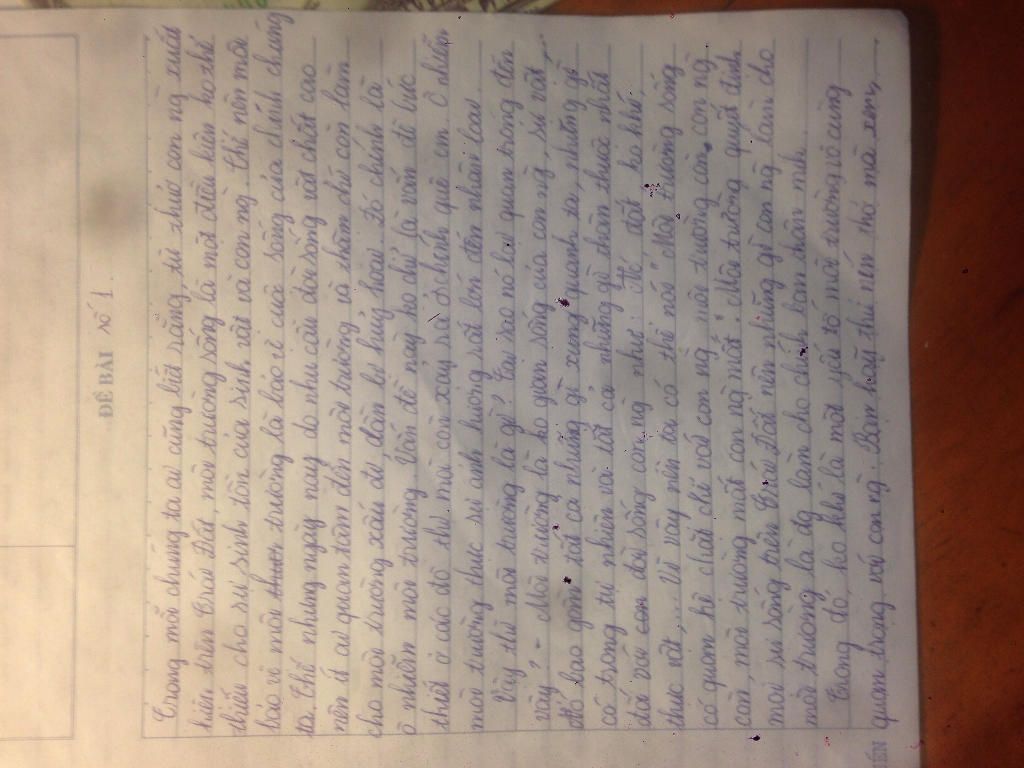 ĐỀ BÀI số 1.
Trong mỗi chúng ta ai cũng biết rằng, từ thuở con ng xuất
hiện trên Trái Đất, môi trường sống là một điều kiện ko thể
thiếu cho sự sinh tồn của sinh vật và con ng. Thế nên mỗi
bảo vệ môi trường là bảo vệ cuộc sống của chính chúng
ta. Thế nhưng ngày nay do nhu cầu đời sống vật chất cao
nên ít ai quan tâm đến môi trường và thậm chí còn làm
cho môi trường xấu đi dần bị huỷ hoại. Đó chính là
ô nhiễm môi trường. Vấn đề này ko chỉ là vấn đề bức
thiết ở các đô thị mà còn xảy ra ở chính quê em. Ô nhiễm
môi trường thực sự ảnh hưởng rất lớn đến nhân loại.
Vậy thì môi trường là gì? Tại sao nó lại quan trọng đến
vậy? - Môi trường là ko gian sống của con ng, sự vật
đó bao gồm tất cả những gì xung quanh ta, những gì
có trong tự nhiên và tất cả những gì thân thuộc nhất
đối với đời sống con ng như: đất, ko khí,
thực vật,... Vì vậy nên ta có thể nói "Môi trường sống
có quan hệ chặt chẽ với con ng, môi trường còn, con ng
còn, môi trường mất con ng mất". Môi trường quyết định
mọi sự sống trên Trái Đất nên những gì con ng làm cho
môi trường là đg làm cho chính bản thân mình.
Trong đó, ko khí là một yếu tố môi trường vô cùng
quan trọng với con ng. Bạn hãy thử nín thở mà xem,